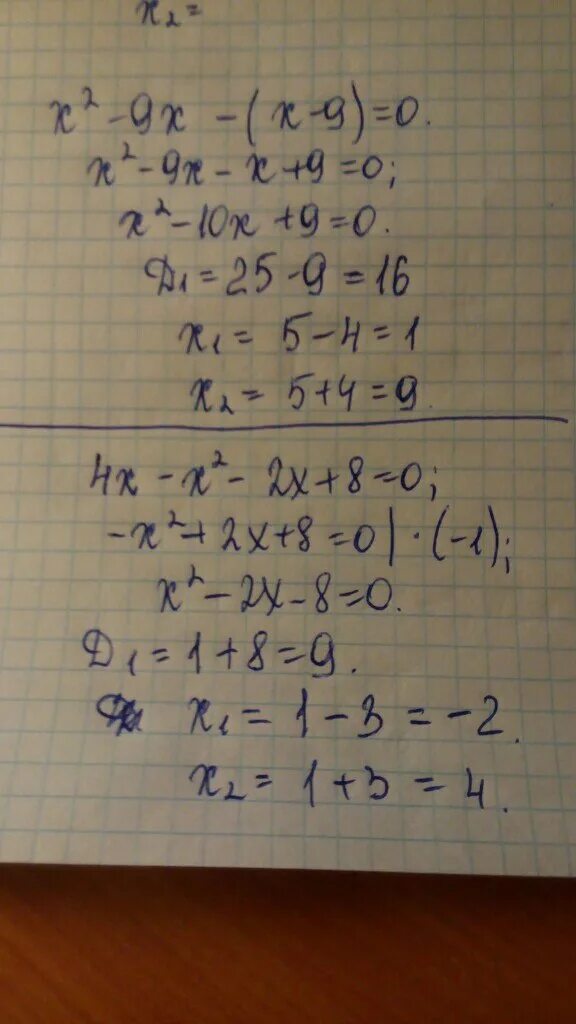 x₂ =
x² - 9x - (x - 9) = 0.
x² - 9x - x + 9 = 0;
x² - 10x + 9 = 0.
D₁ = 25 - 9 = 16
x₁ = 5 - 4 = 1
x₂ = 5 + 4 = 9.
4x - x² - 2x + 8 = 0;
-x² + 2x + 8 = 0 | · (-1);
x² - 2x - 8 = 0.
D₁ = 1 + 8 = 9.
x₁ = 1 - 3 = -2.
x₂ = 1 + 3 = 4.